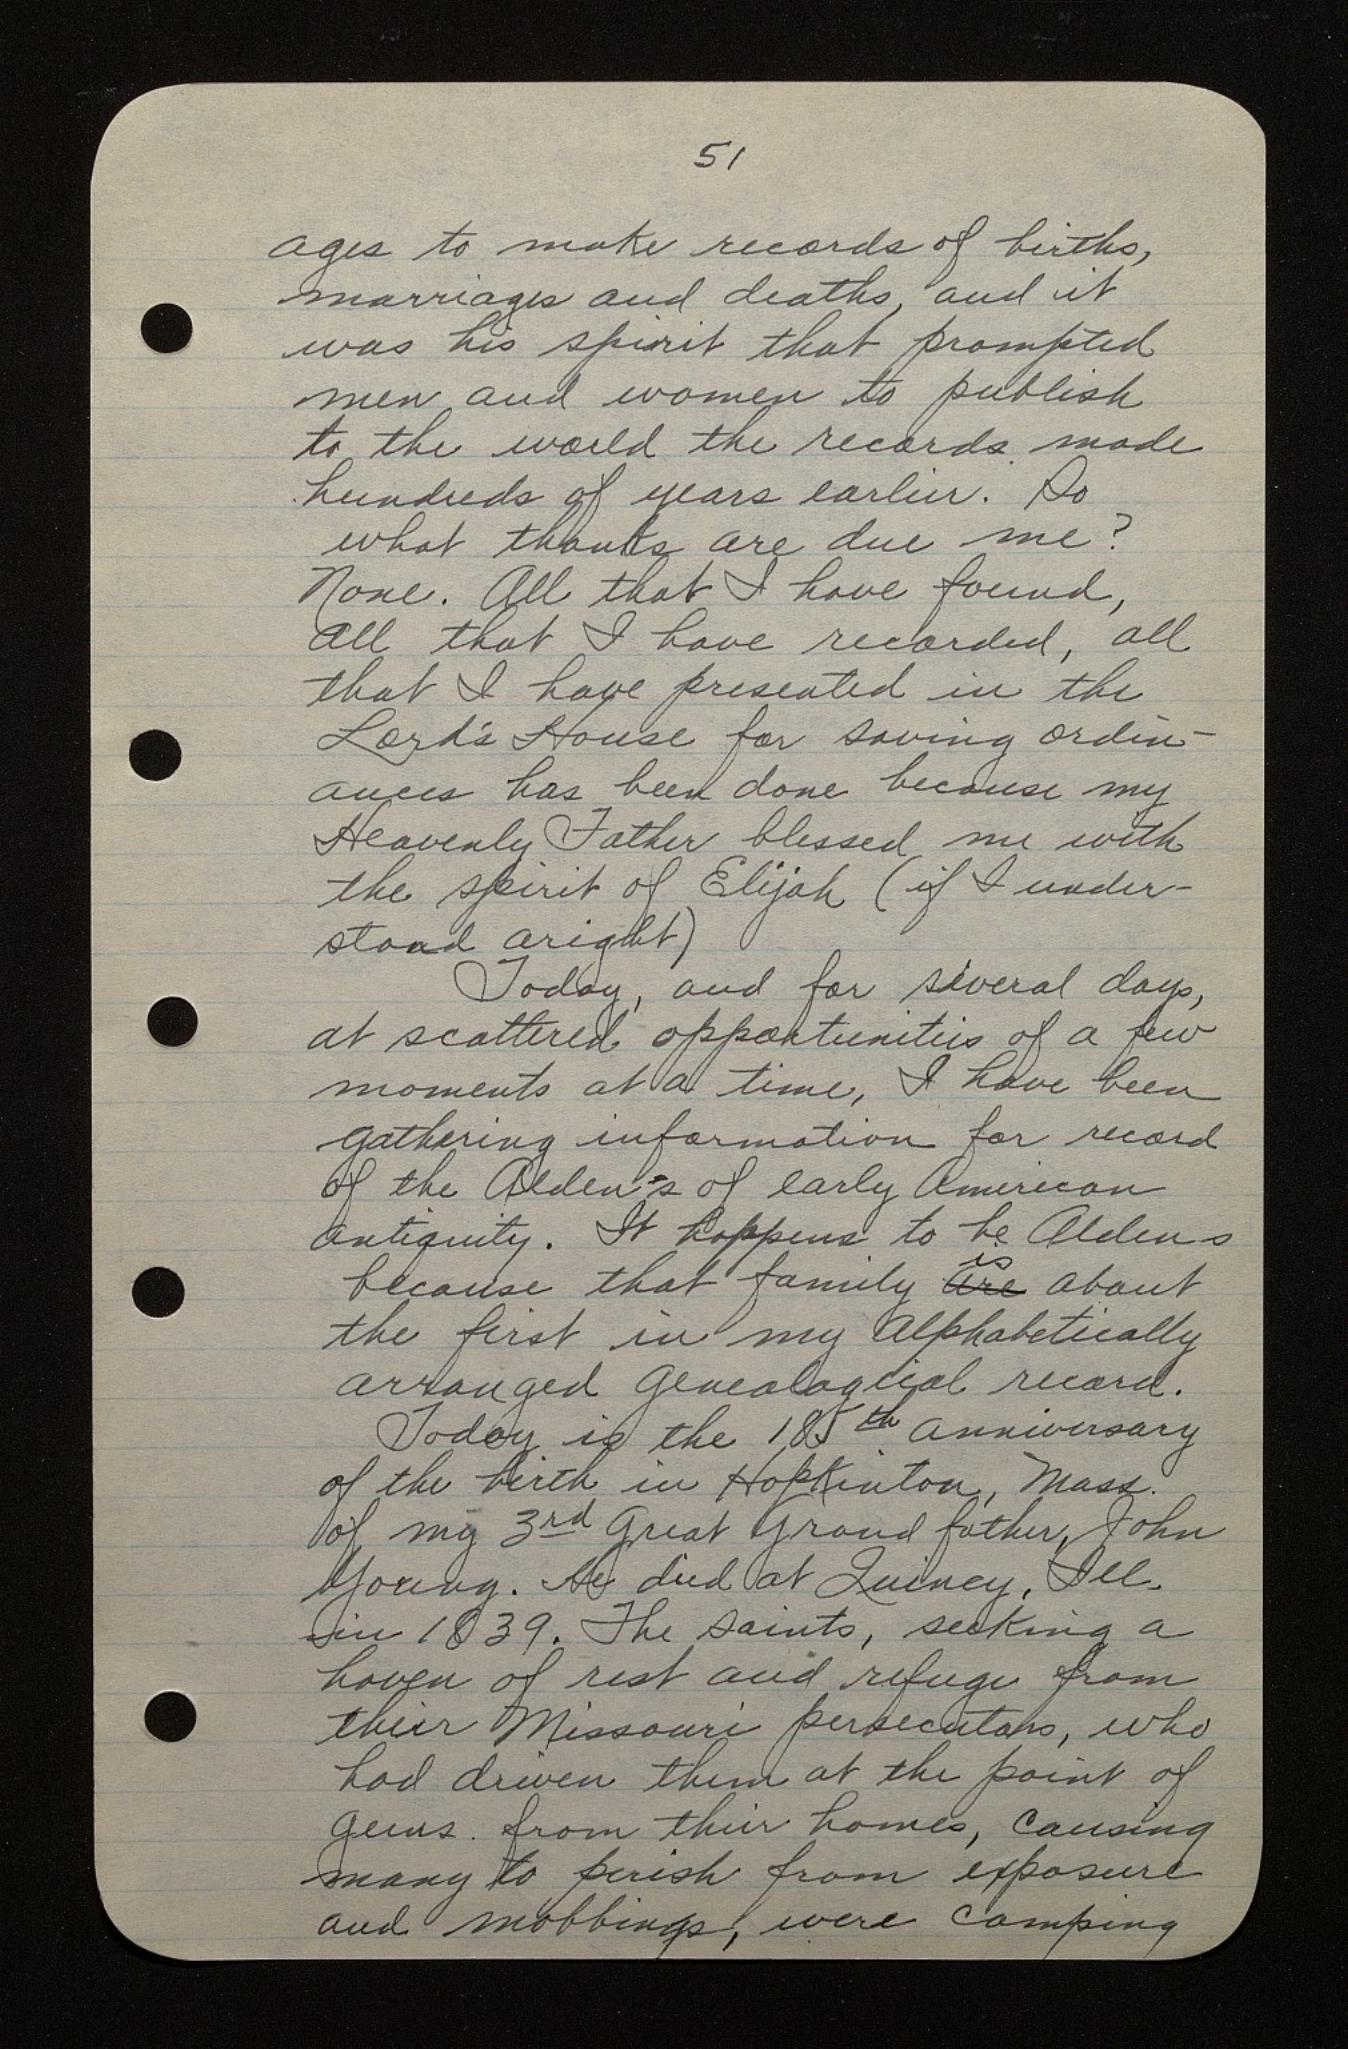 51
ages to make records of births,
marriages and deaths, and it
was his spirit that prompted
men and women to publish
to the world the records made
hundreds of years earlier. So
what thanks are due me?
None. All that I have found,
all that I have recorded, all
that I have presented in the
Lord's House for saving ordin-
ances has been done because my
Heavenly Father blessed me with
the spirit of Elijah (if I under-
stand aright)
Today, and for several days,
at scattered opportunities of a few
moments at a time, I have been
gathering information for record
of the Alden's of early American
antiquity. It happens to be Aldens
because that family are is about
the first in my alphabetically
arranged genealogical record.
Today is the 185th anniversary
of the birth in Hopkinton, Mass.
of my 3rd Great Grand father, John
Young. He died at Quincy, Ill.
in 1839. The saints, seeking a
haven of rest and refuge from
their Missouri persecutors, who
had driven them at the point of
guns from their homes, causing
many to perish from exposure
and mobbings, were camping